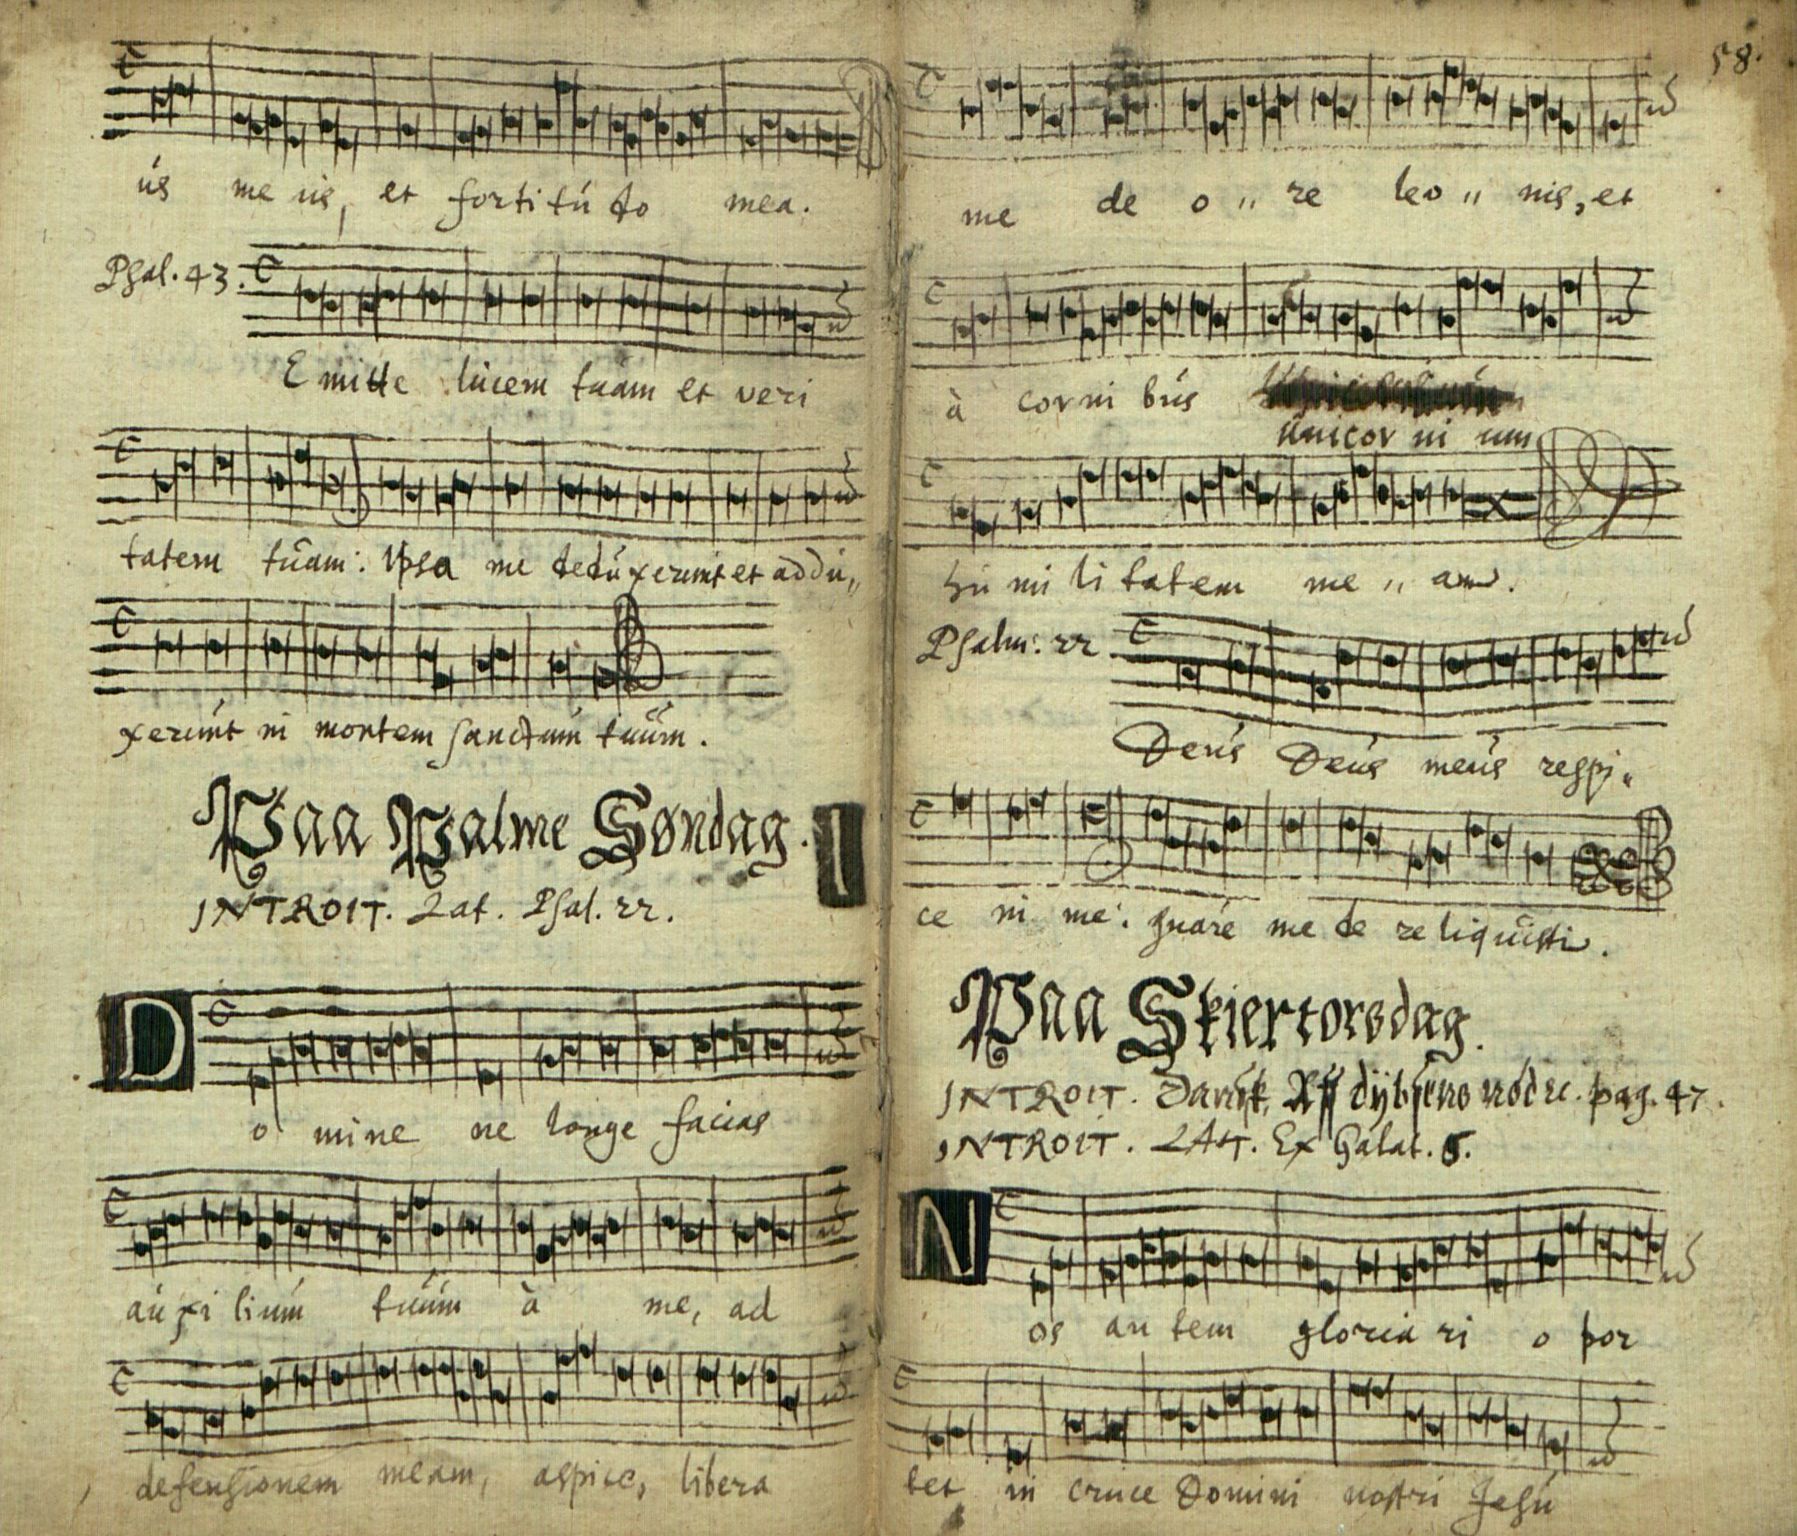 ús me ús, et fortitúdo mea.
Psal. 43.
Emitte lúcem túam et veri
tatem túam: Ipsa me dedúxerúnt et addú„
xerúnt in montem sanctúm túúm.
Paa Palme Søndag. I
INTROIT. Lat. Psal. 22.
D
o mine ne longe facias
aúxi liúm túúm à me, ad
defensionem meam, aspice, libera
58.
me de o „ re leo „ nis, et
à corni bús
únicor ni um
hú mi li tatem me „ am.
Psalm: 22
Deús Deús meús respi„
ce in me: quare me de re liquisti.
Paa Skiertorsdag.
INTROIT. Dansk, Aff dÿbsens nød ꝛc. pag. 47.
INTROIT. LAT. Ex Galat. 6.
N
os au tem gloria ri o por
tet in cruce Domini nostri Jesú